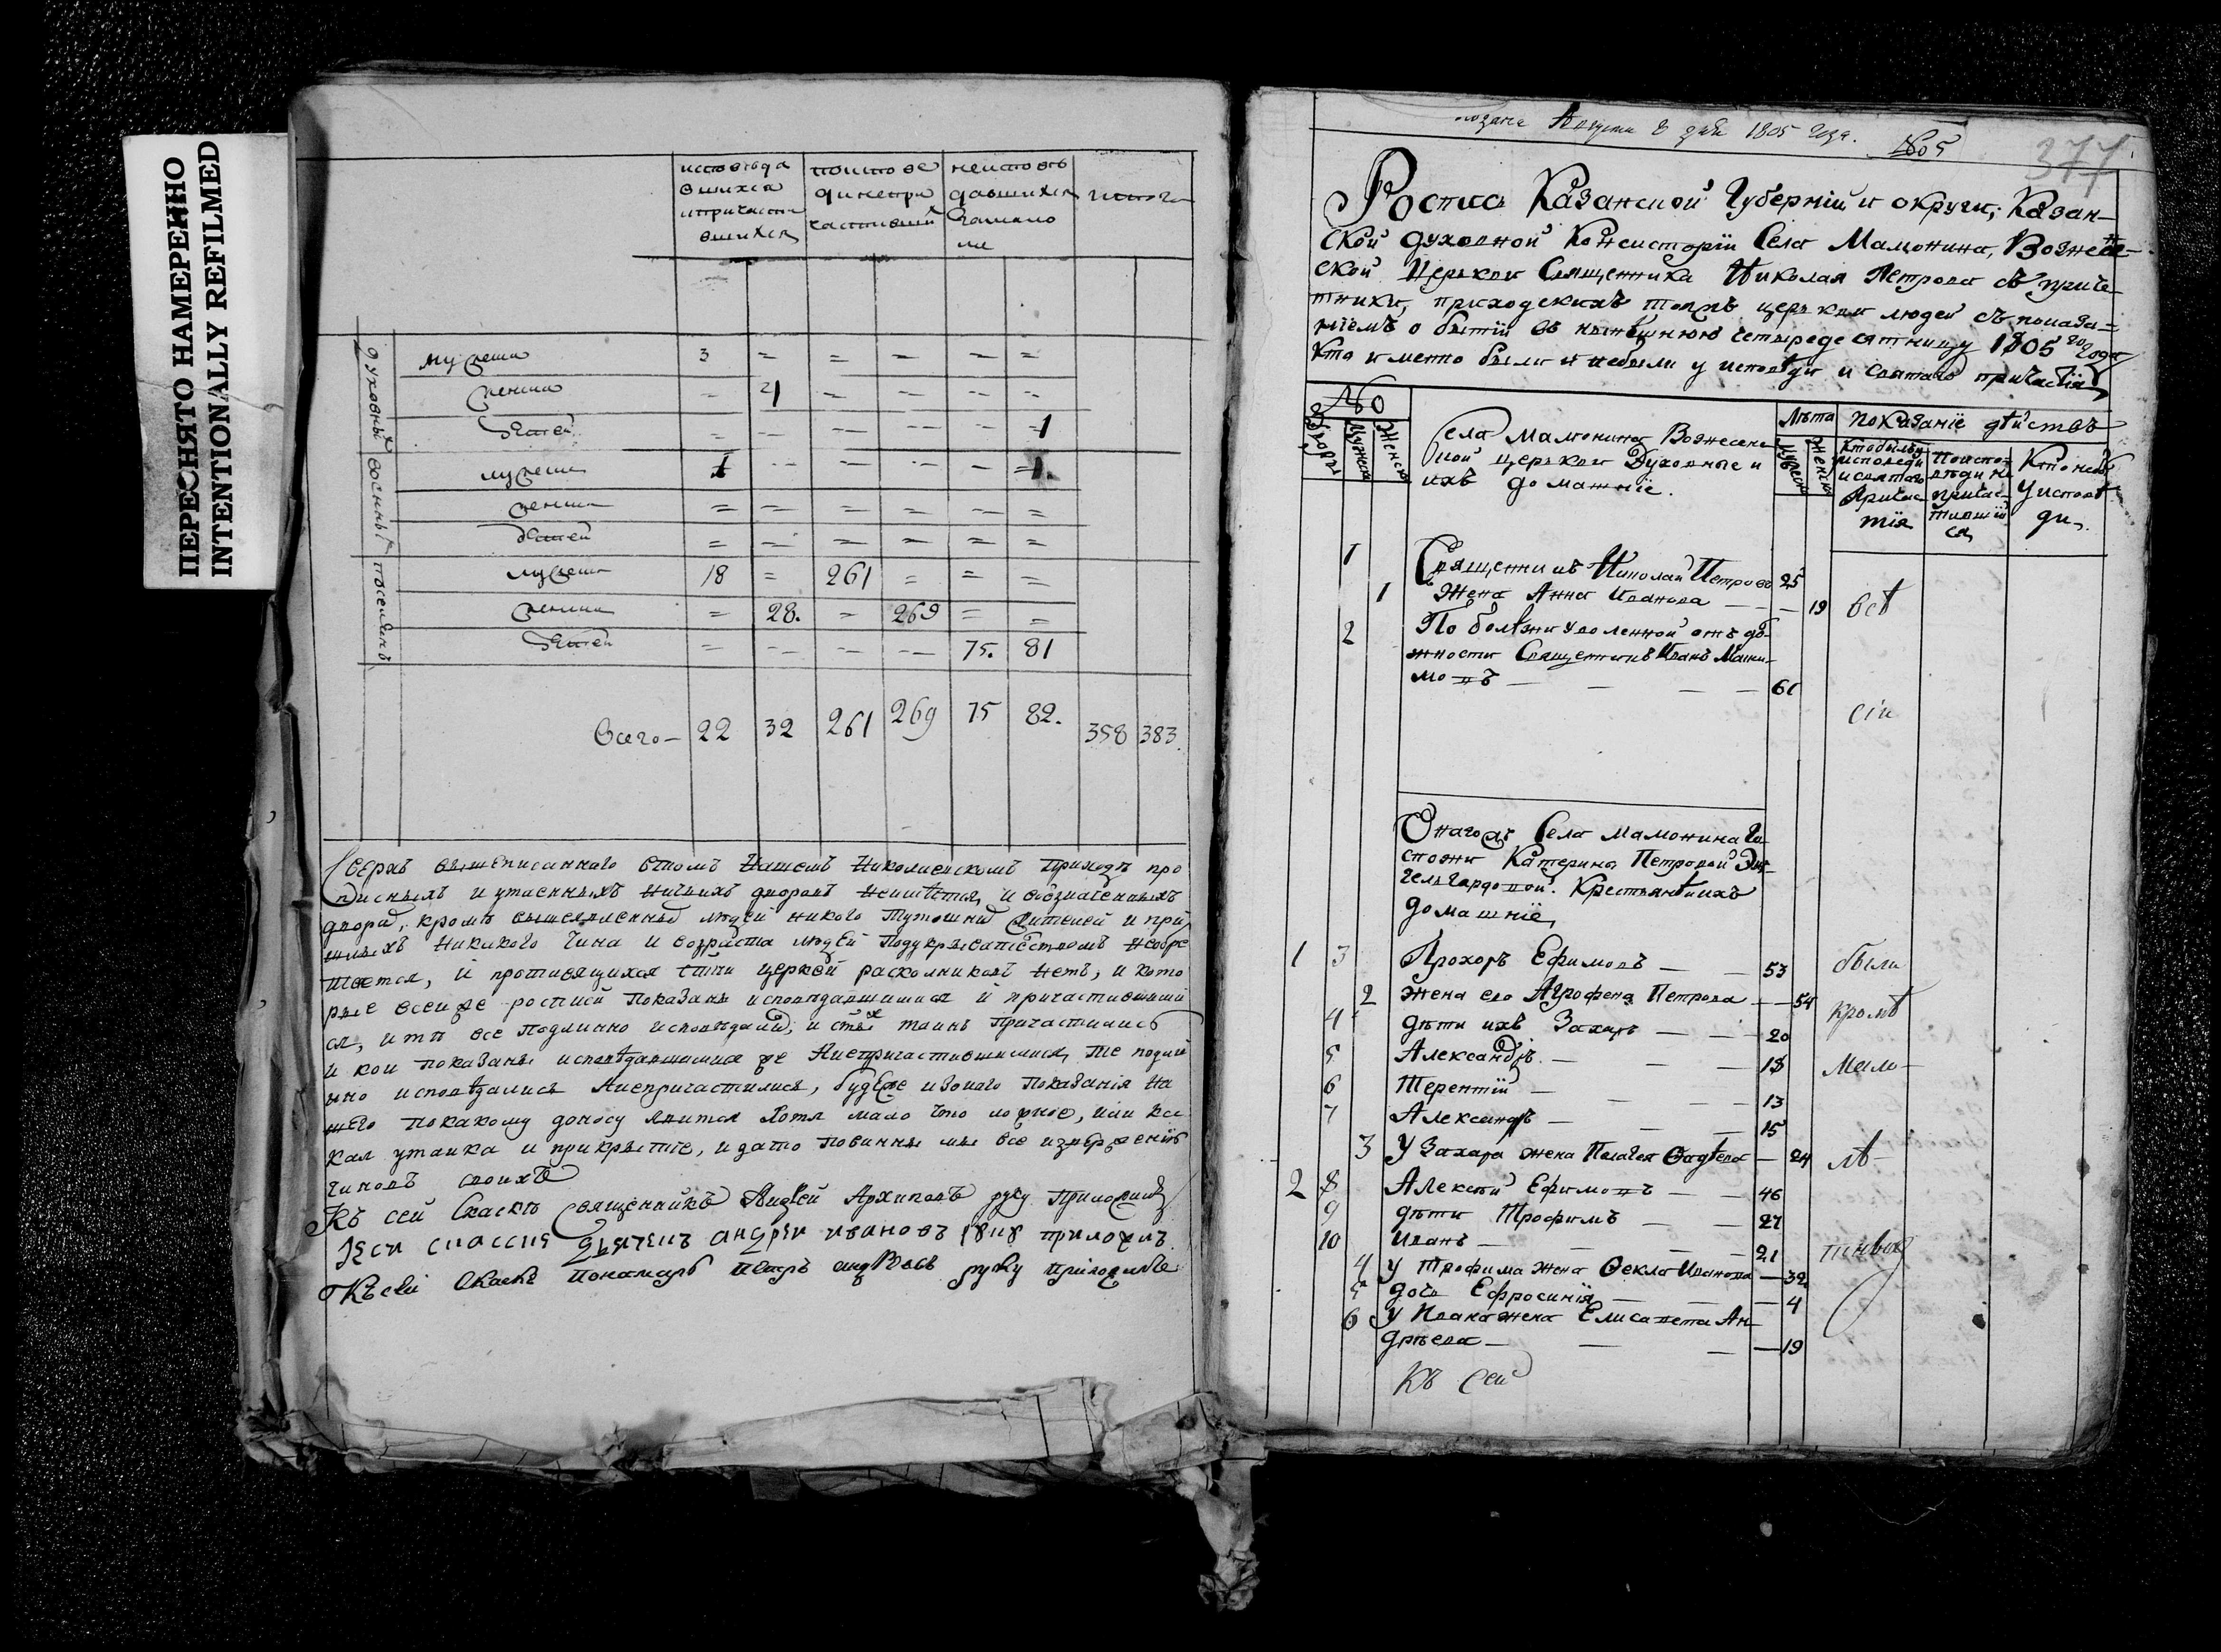 ПЕРЕСНЯТО НАМЕРЕННО
INTENTIONALLY REFILMED
исповѣда вшихся и причасти вшихся
по испове ди непри частивший
неисповѣ давшихся замало ли
итого
Духовныхъ
мужеска 3 = = = = =
женска - 4 - - - -
дѣтей - - - - - 1
военныхъ
мужеска 1 - - - - 1.
женска = = = = = =
дѣтей = = = = = =
поселянъ
мужеска 18 = 261 = = =
женска = 28. - 269 = =
дѣтей = - - - 75. 81
Всего – 22 32 261 269 75 82. 358 383.
Сверхъ вышеписаннаго вономъ Нашемъ Николаевскомъ Приходѣ про
писныхъ и утаенныхъ Ничьихъ дворовъ Неимѣется, и вобозначенныхъ
двора, кромѣ вышеявленныхъ людей никого Тутошныхъ жителей и при
шлыхъ Никакого Чина и возраста людей Подукрывателствомъ Необре
тается, и противящихся стѣй церкви расколниковъ Нетъ, и кото
рые всеи же росписи Показаны исповѣдавшимися и причастивший
ся, и тѣ все Подлинно исповѣдали, и стыхъ таинъ Причастились
и кои показаны исповѣдавшимися же Анепричастившимися, Те подли
нно исповѣдались Анепричастились, буде же изоного Показанія На
шего Покакому доносу явится Хотя мало Что ложное, или ка
кая утаика и прикрытіе, и зато Повинны мы все извержению
чиновъ своихъ
Къ сей Сказкѣ Священникъ Андрей Архиповъ руку Приложилъ
андреи ивановъ приложилъ
Къ сеи Скаскѣ Пономарь руку приложилъ
подана Августа 8 дня 1805 года.
1805
377
Роспись Казанской Губерніи и округи, Казан-
ской духовной Консисторіи Села Мамонина, Вознесен-
ской Церкви Священника Николая Петрова съ приче-
тники, приходскихъ тоя церькви людей съ показа-
ніемъ о бытіи въ нынѣшнюю четыредесятницу 1805го года
Кто именно были и небыли у исповѣди и святаго причастія
№
Дворы
Мужеска
Женска
Села Мамонина Вознесен-
ной церькви Духовные и
ихъ домашніе.
Лѣта
Мужеска
Женска
показаніе дѣйствъ
Кто были у исповеди и святаго Причас- тія
По испо- вѣди не причас- тившій ся
Кто небы у исповѣ ди
1 Священникъ Николай Петровъ 25
1 Жена Анна Иванова – – – 19 всѣ
2 По болѣзни уволенной отъ до-
жности Священникъ Иванъ Макси-
мовъ – – – – 61
сіи
Оногожъ Села Мамонина Го-
спожи Катерины Петровой Эн-
гельгардовой. Крестьянѣ ихъ
домашніе,
1 3 Прохоръ Ефимовъ – – 53 были
2 жена его Агрофена Петрова – – 54
4 дѣти ихъ Захаръ – – 20 кромѣ
5 Александръ – – – 18 мало-
6 Терентій – – – – 13
7 Александръ – – – 15
3 У Захара жена Пелагея Фадѣева – 24 лѣ-
2 8 Алексѣй Ефимовъ – – 46
9 дѣти Трофимъ – – 27
10 Иванъ – – – – 21 тнихъ
4 У Трофима жена Фекла Иванова – 32
5 дочь Ефросинія – – – 4
6 У Ивана жена Елисавета Ан-
дрѣева – – – – 19
Къ сей